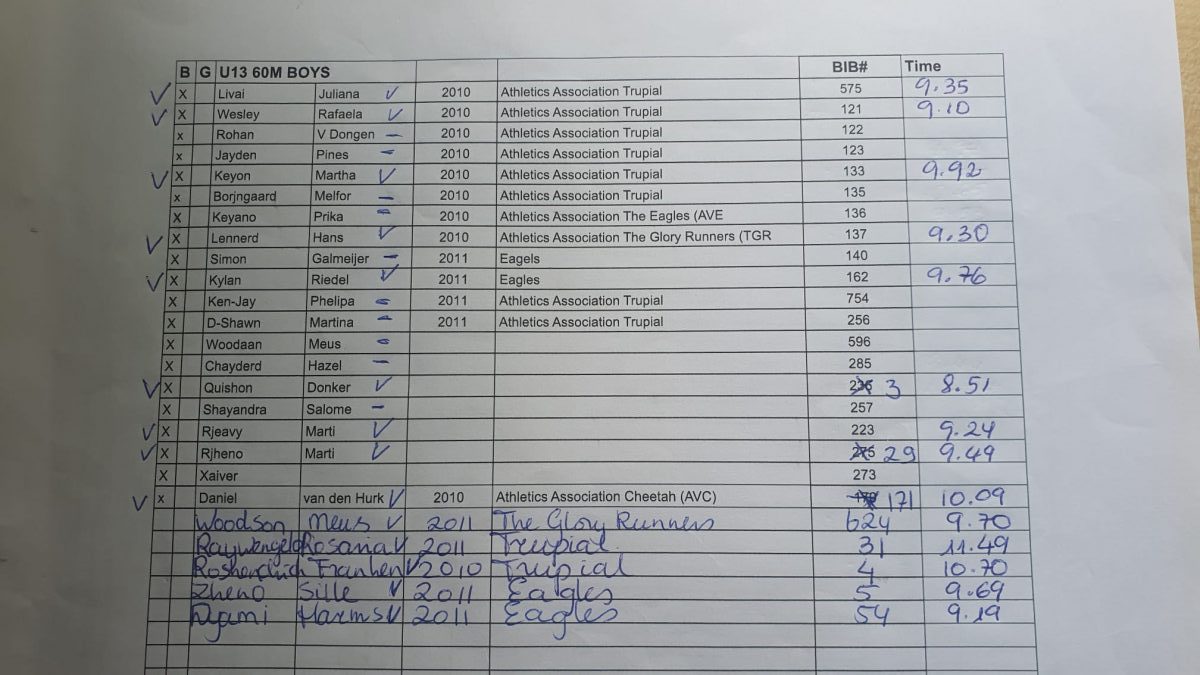 B G U13 60M BOYS BIB# Time
✓ X Livai Juliana ✓ 2010 Athletics Association Trupial 575 9.35
✓ X Wesley Rafaela ✓ 2010 Athletics Association Trupial 121 9.10
x Rohan V Dongen — 2010 Athletics Association Trupial 122
x Jayden Pines — 2010 Athletics Association Trupial 123
✓ X Keyon Martha ✓ 2010 Athletics Association Trupial 133 9.92
x Borjngaard Melfor — 2010 Athletics Association Trupial 135
X Keyano Prika — 2010 Athletics Association The Eagles (AVE 136
✓ X Lennerd Hans ✓ 2010 Athletics Association The Glory Runners (TGR 137 9.30
X Simon Galmeijer — 2011 Eagels 140
✓ X Kylan Riedel ✓ 2011 Eagles 162 9.76
X Ken-Jay Phelipa — 2011 Athletics Association Trupial 754
X D-Shawn Martina — 2011 Athletics Association Trupial 256
X Woodaan Meus — 596
X Chayderd Hazel — 285
✓ X Quishon Donker ✓ 3 8.51
X Shayandra Salome — 257
✓ X Rjeavy Marti ✓ 223 9.24
✓ X Rjheno Marti ✓ 29 9.49
X Xaiver 273
✓ x Daniel van den Hurk ✓ 2010 Athletics Association Cheetah (AVC) 171 10.09
Woodson Meus ✓ 2011 The Glory Runners 624 9.70
Raywengelo Rosaria ✓ 2011 Trupial 31 11.49
✓ 2010 Trupial 4 10.70
Zheno Sille ✓ 2011 Eagles 5 9.69
Dyami Harms ✓ 2011 Eagles 54 9.19